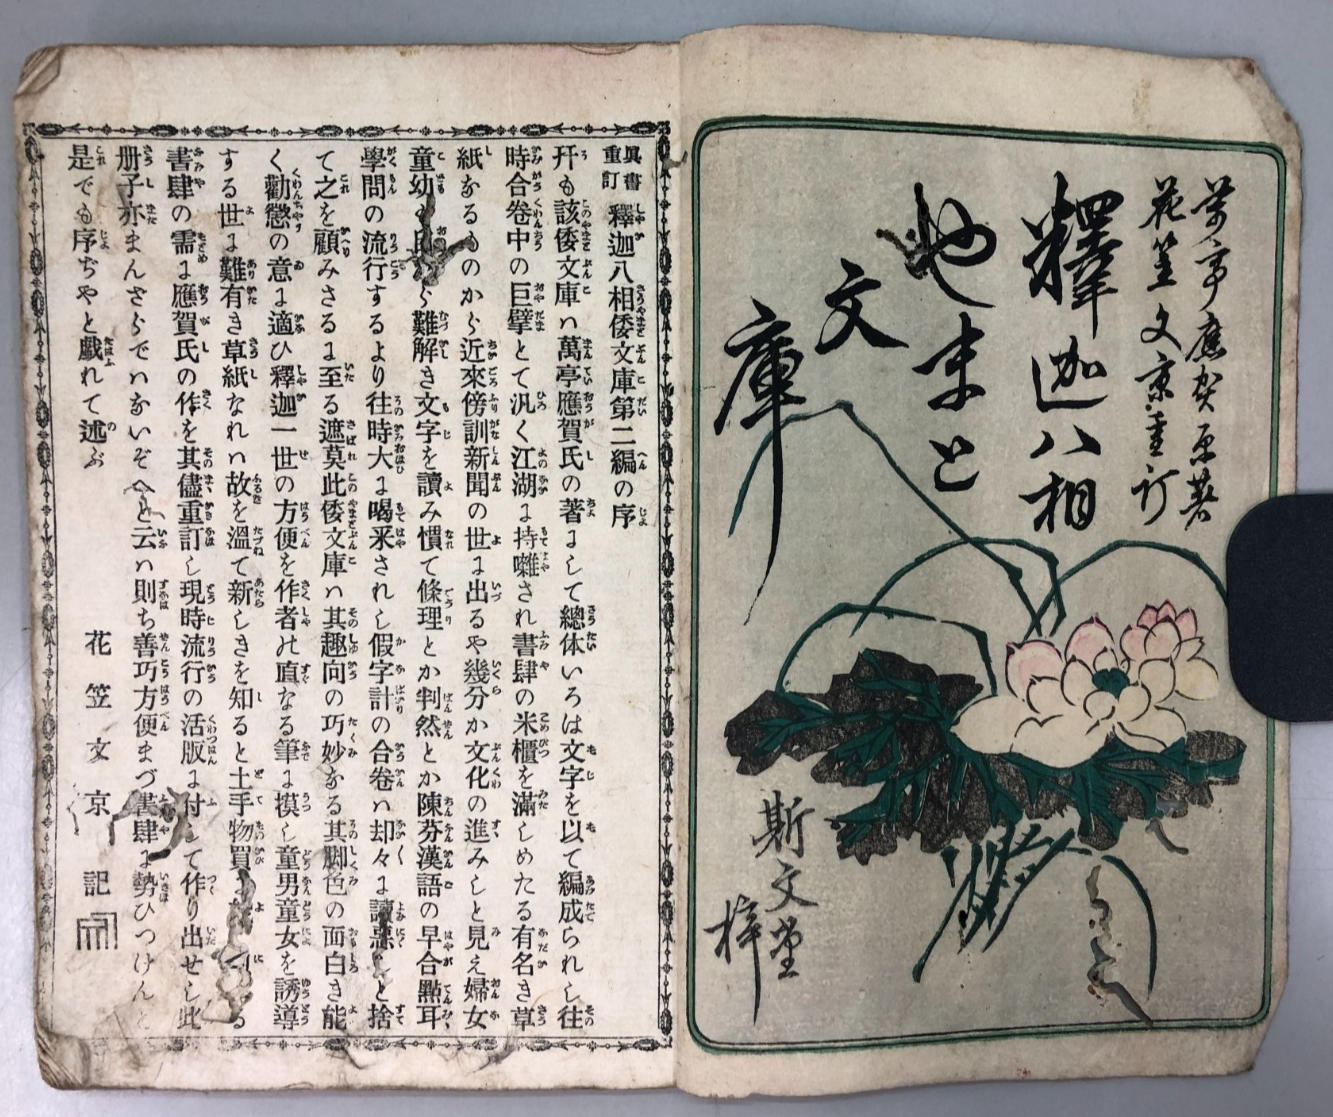 萬亭應賀原著
花笠文京重訂
釋迦八相
也まと
文
庫
斯文堂
梓
眞書
重訂
釋迦八相倭文庫第二編の序
抑も該倭文庫ハ萬亭應賀氏の著にして總体いろは文字を以て編成られし往
時合巻中の巨擘とて汎く江湖に持囃され書肆の米櫃を滿しめたる有名き草
紙なるものから近來傍訓新聞の世に出るや幾分か文化の進みしと見え婦女
童幼も
難解き文字を讀み慣て條理とか判然とか陳芬漢語の早合點耳
學問の流行するより往時大に喝釆されし假字計の合巻ハ却々に讀惡しと捨
て之を顧みさるに至る遮莫此倭文庫ハ其趣向の巧妙なる其脚色の面白き能
く勸懲の意に適ひ釋迦一世の方便を作者の直なる筆に摸し童男童女を誘導
する世に難有き草紙なれハ故を溫て新しきを知ると土手物買
る
書肆の需に應賀氏の作を其儘重訂し現時流行の活版に付して作り出せし此
册子亦まんざらでハないぞへと云ハ則ち善巧方便まづ書肆に勢ひつけんと
是でも序ぢやと戲れて述ぶ
花笠文京記